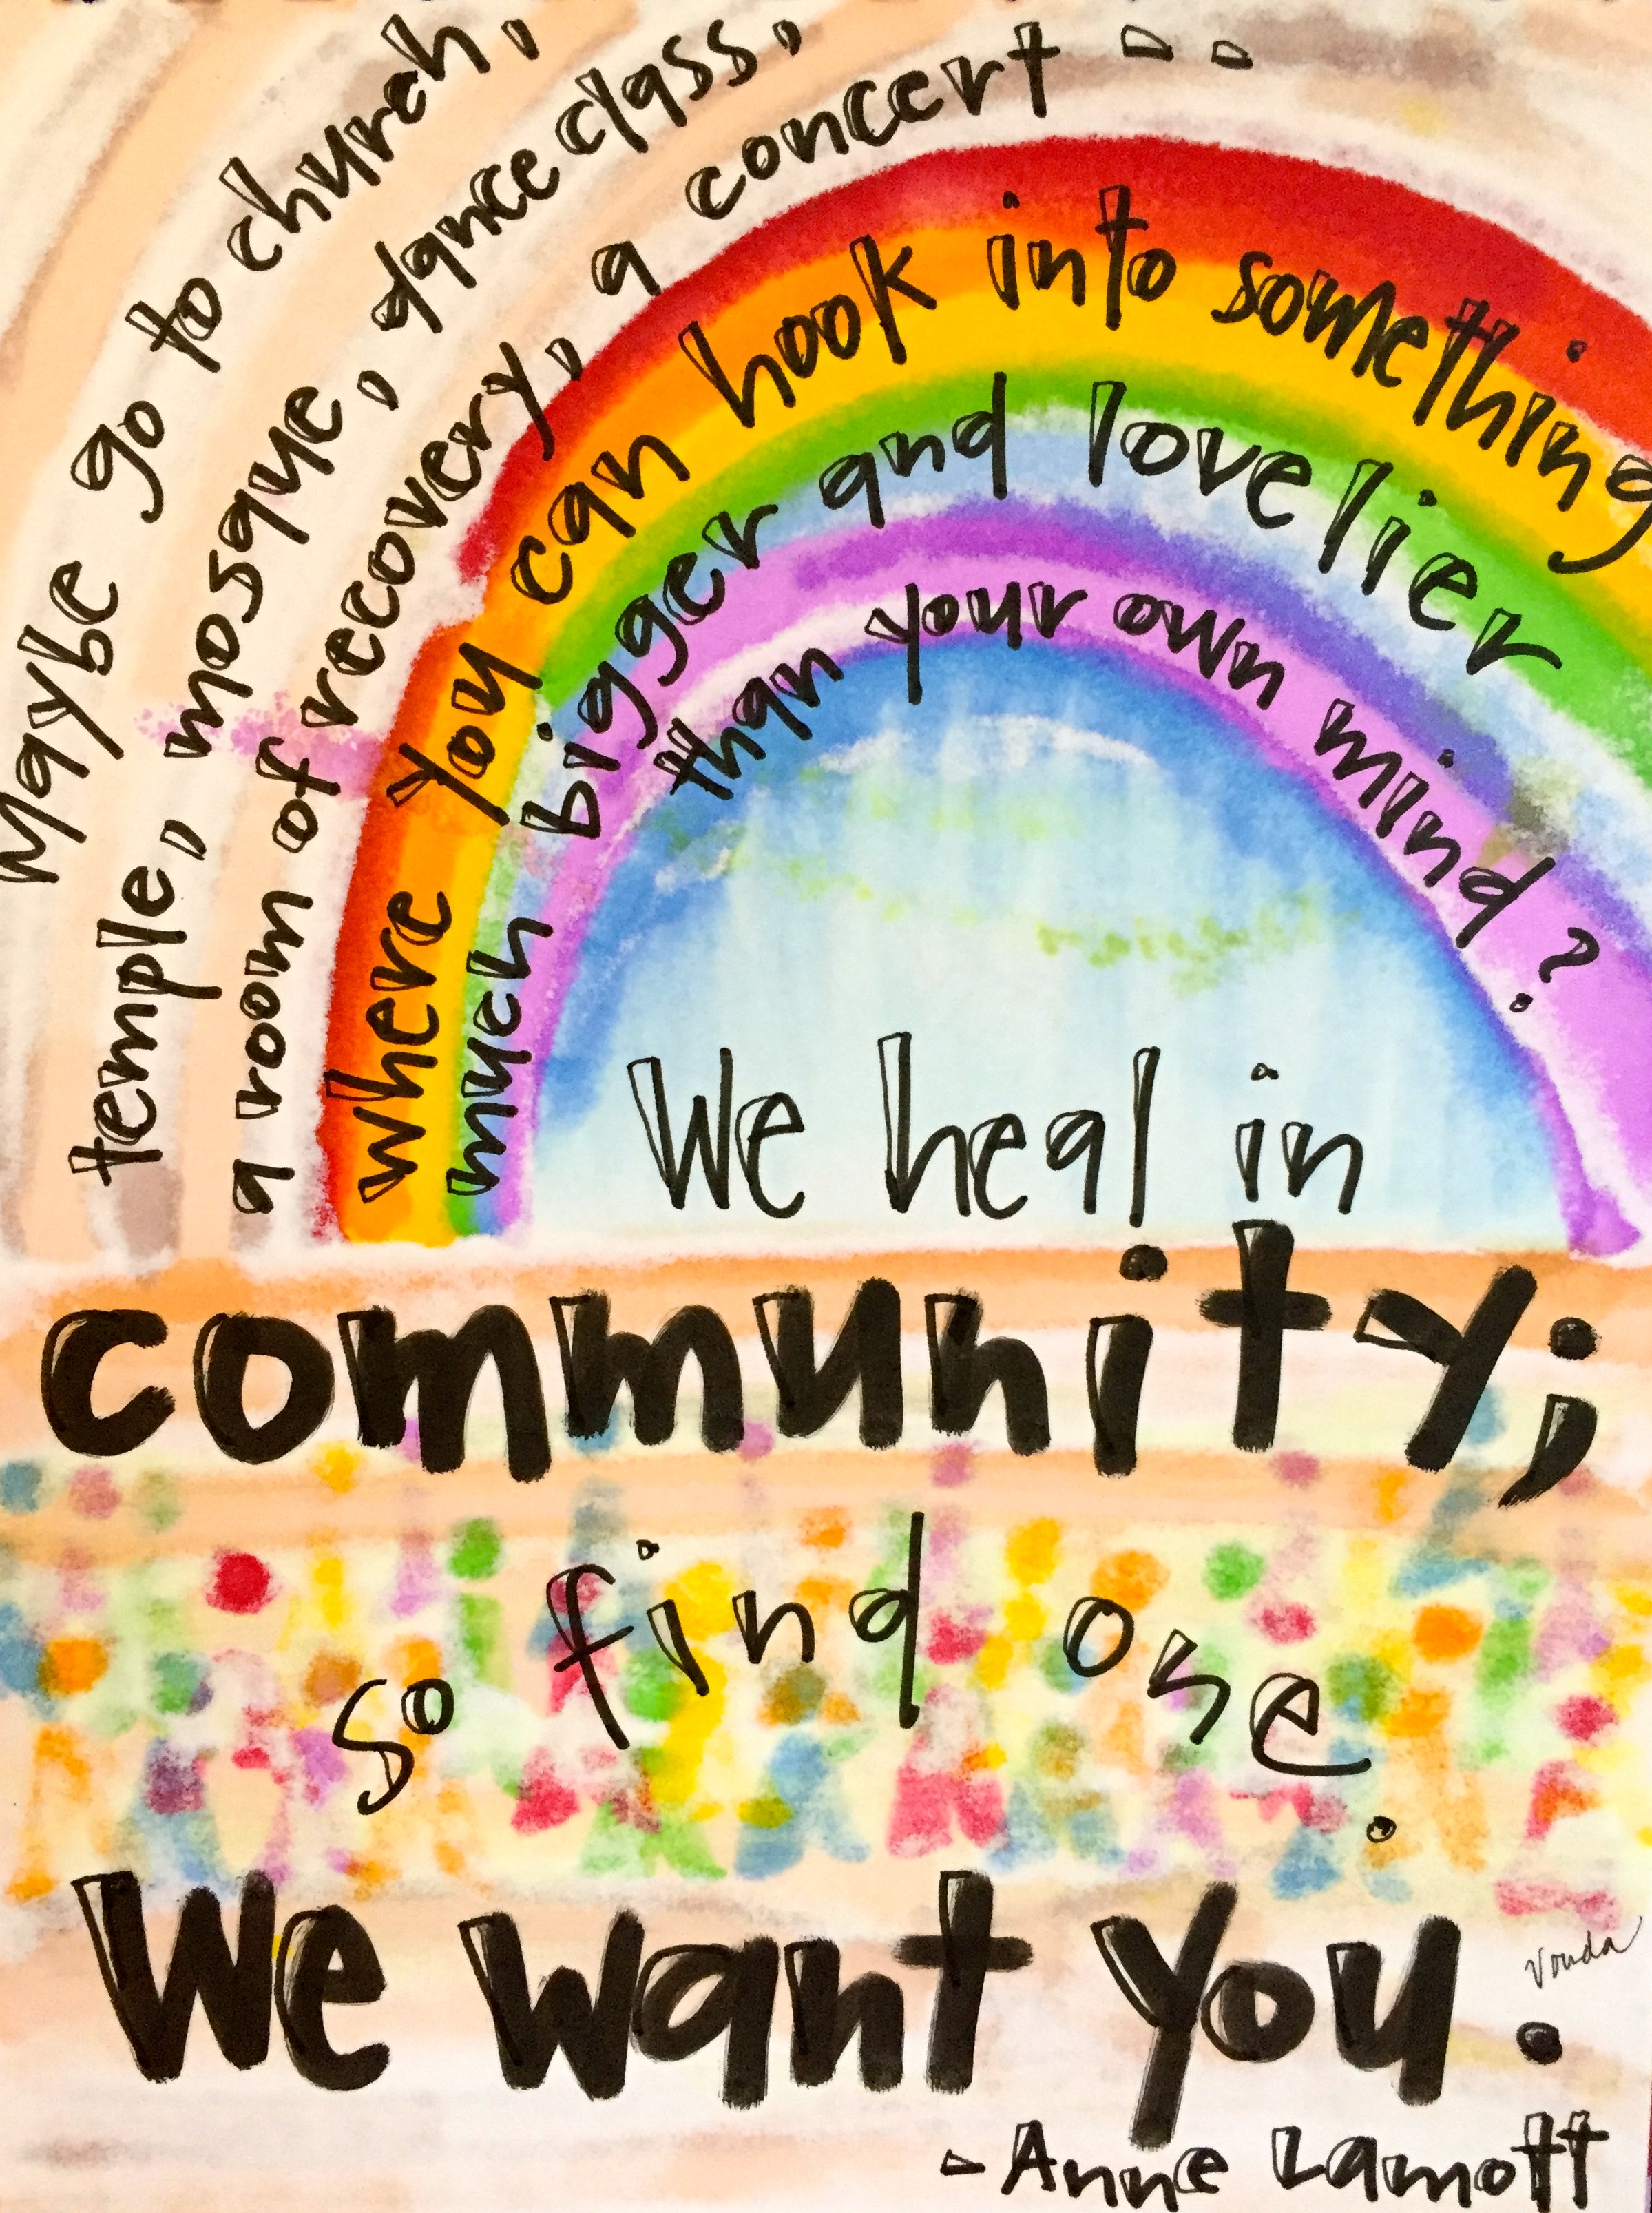 Maybe go to church,
temple, mosque, dance class,
a room of recovery, a concert --
where you can hook into something
much bigger and lovelier
than your own mind?
We heal in
community;
so find one.
We want you.
Vonda
- Anne Lamott